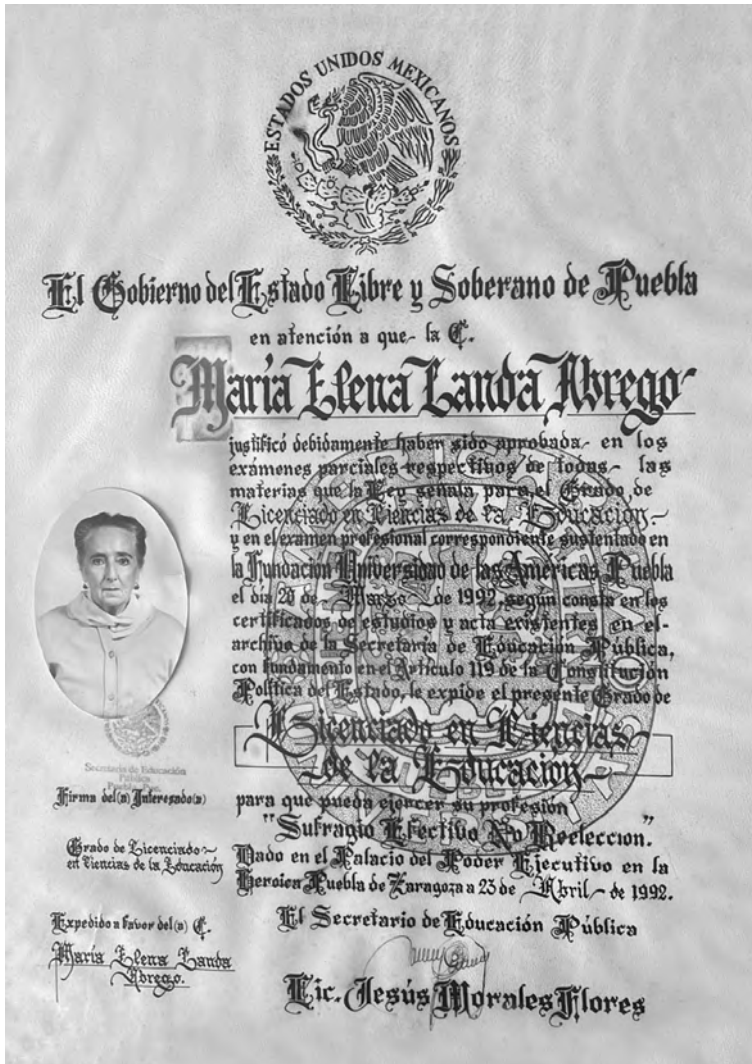 ESTADOS UNIDOS MEXICANOS
El Gobierno del Estado Libre y Soberano de Puebla
en atención a que la C.
María Elena Landa Abrego
justificó debidamente haber sido aprobada en los
exámenes parciales respectivos de todas las
materias que la Ley señala para el Grado de
Licenciado en Ciencias de la Educación
y en el examen profesional correspondiente sustentado en
la Fundación Universidad de las Américas Puebla
el día de Marzo de 1992, según consta en los
certificados de estudios y acta existentes en el
archivo de la Secretaría de Educación Pública,
con fundamento en el Artículo 119 de la Constitución
Política del Estado, le expide el presente Grado de
Licenciado en Ciencias
de la Educación
para que pueda ejercer su profesión
"Sufragio Efectivo No Reelección."
Dado en el Palacio del Poder Ejecutivo en la
Heroica Puebla de Zaragoza a 23 de Abril de 1992.
El Secretario de Educación Pública
Lic. Jesús Morales Flores
Secretaría de Educación
Pública
Firma del(a) Interesado(a)
Grado de Licenciado
en Ciencias de la Educación
Expedido a favor del(a) C.
María Elena Landa
Abrego.